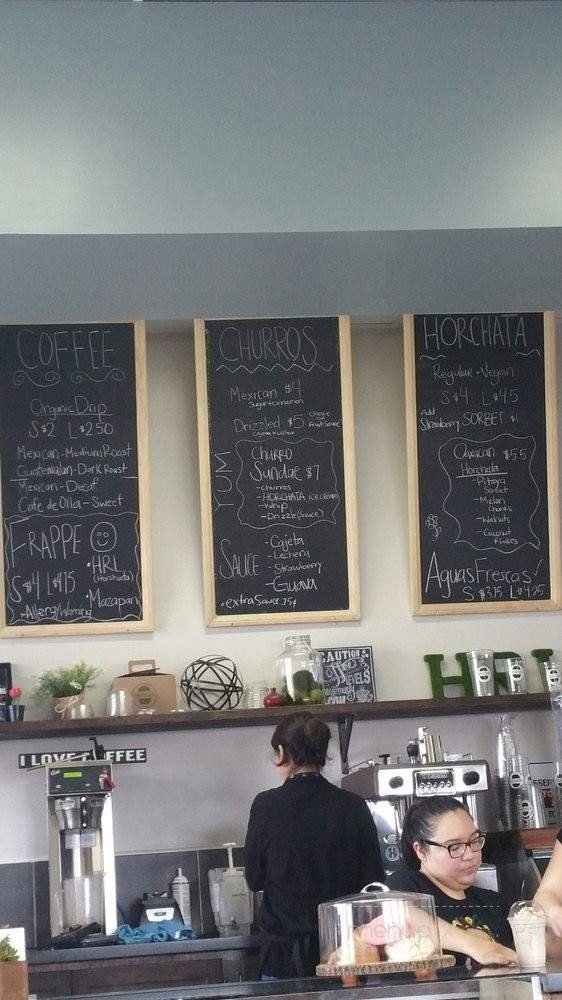 COFFEE
Organic Drip
S $2 L $2.50
Mexican - Medium Roast
Guatemalan - Dark Roast
Mexican - Decaf
Cafe de Olla - Sweet
FRAPPE
• HRL
(Horchata)
S $4 L $4.75
• Mazapan
- Allergy Warning
CHURROS
Mexican $4
Sugar + Cinnamon
Drizzled $5
YUM
Churro
Sundae $7
- churros
- HORCHATA ice cream
- Whip
- Drizzle (Sauce)
SAUCE
- Cajeta
- Lechera
- Strawberry
- Guava
• extra Sauce .75¢
HORCHATA
Regular • Vegan
S $4 L $4.5
Add
Strawberry SORBET $1
Oaxacan $5.5
Horchata
- Pitaya
Sorbet
- Melon
Chunks
- Walnuts
- Coconut
flakes
Aguas Frescas
S $3.75 L $4.25
CAUTION
HRL
I LOVE COFFEE
menu